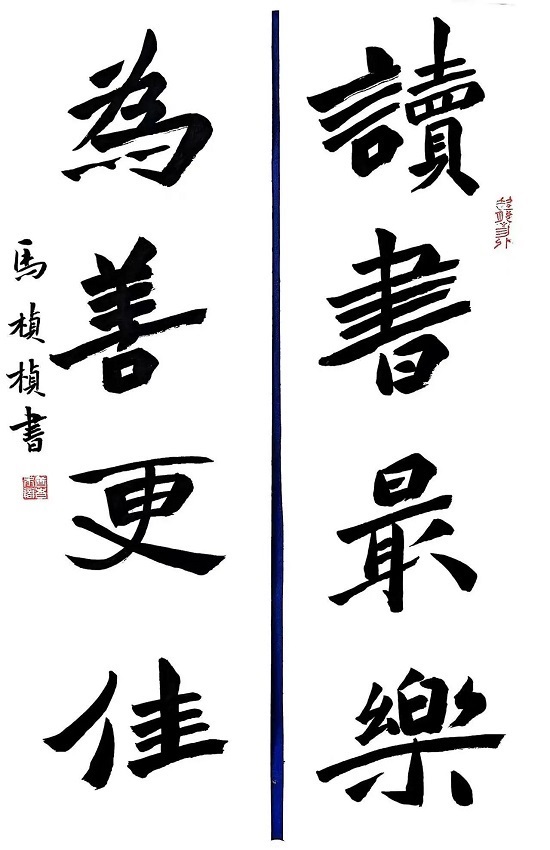 讀書最樂
為善更佳
馬楨楨書